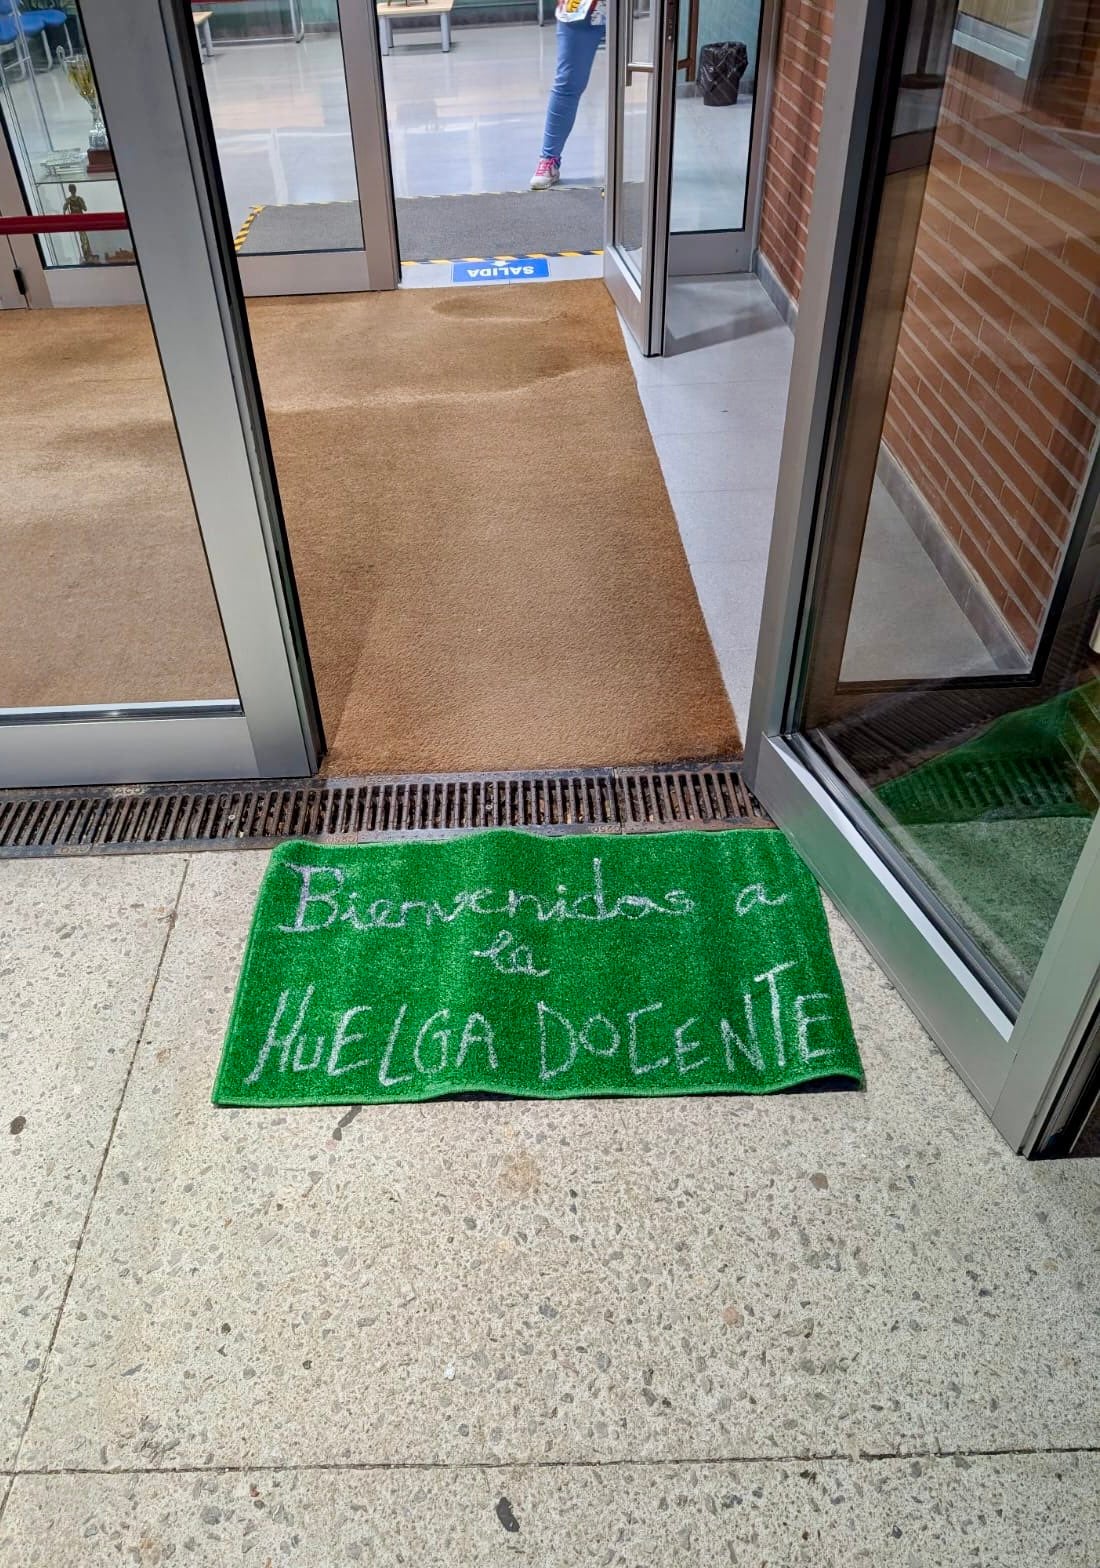 SALIDA
Bienvenidos a
la
HUELGA DOCENTE